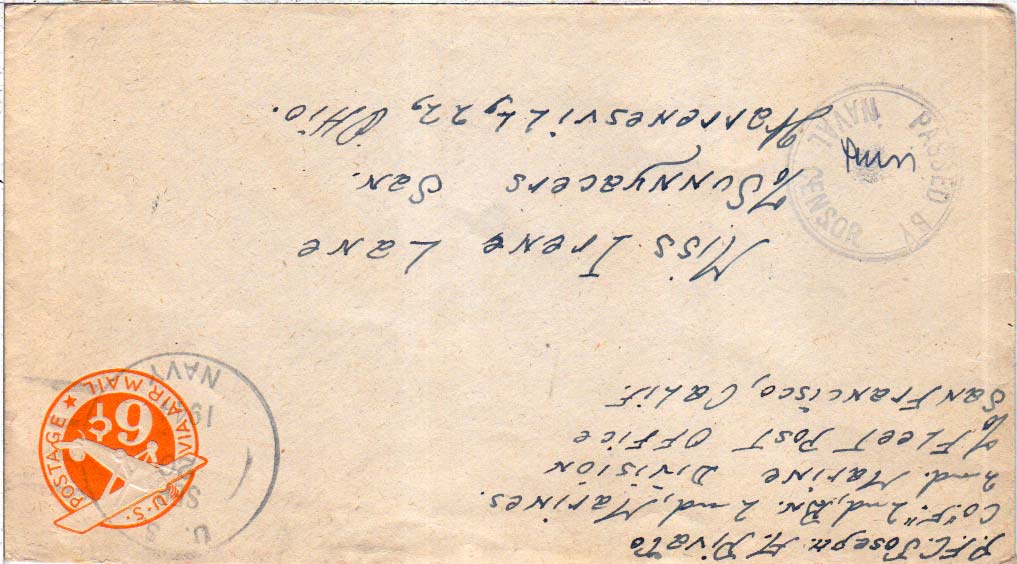 P.F.C. Joseph. A. Divato
Co "F." 2nd, Bn. 2nd, Marines.
2nd. Marine Division
% Fleet Post Office
% San Francisco, Calif.
U. S.
NAVY
U.S. POSTAGE ★ VIA AIR MAIL
6¢
Miss Irene Lane
% Sunnyacers San.
Warrensvill, 22, Ohio.
PASSED BY
NAVAL CENSOR